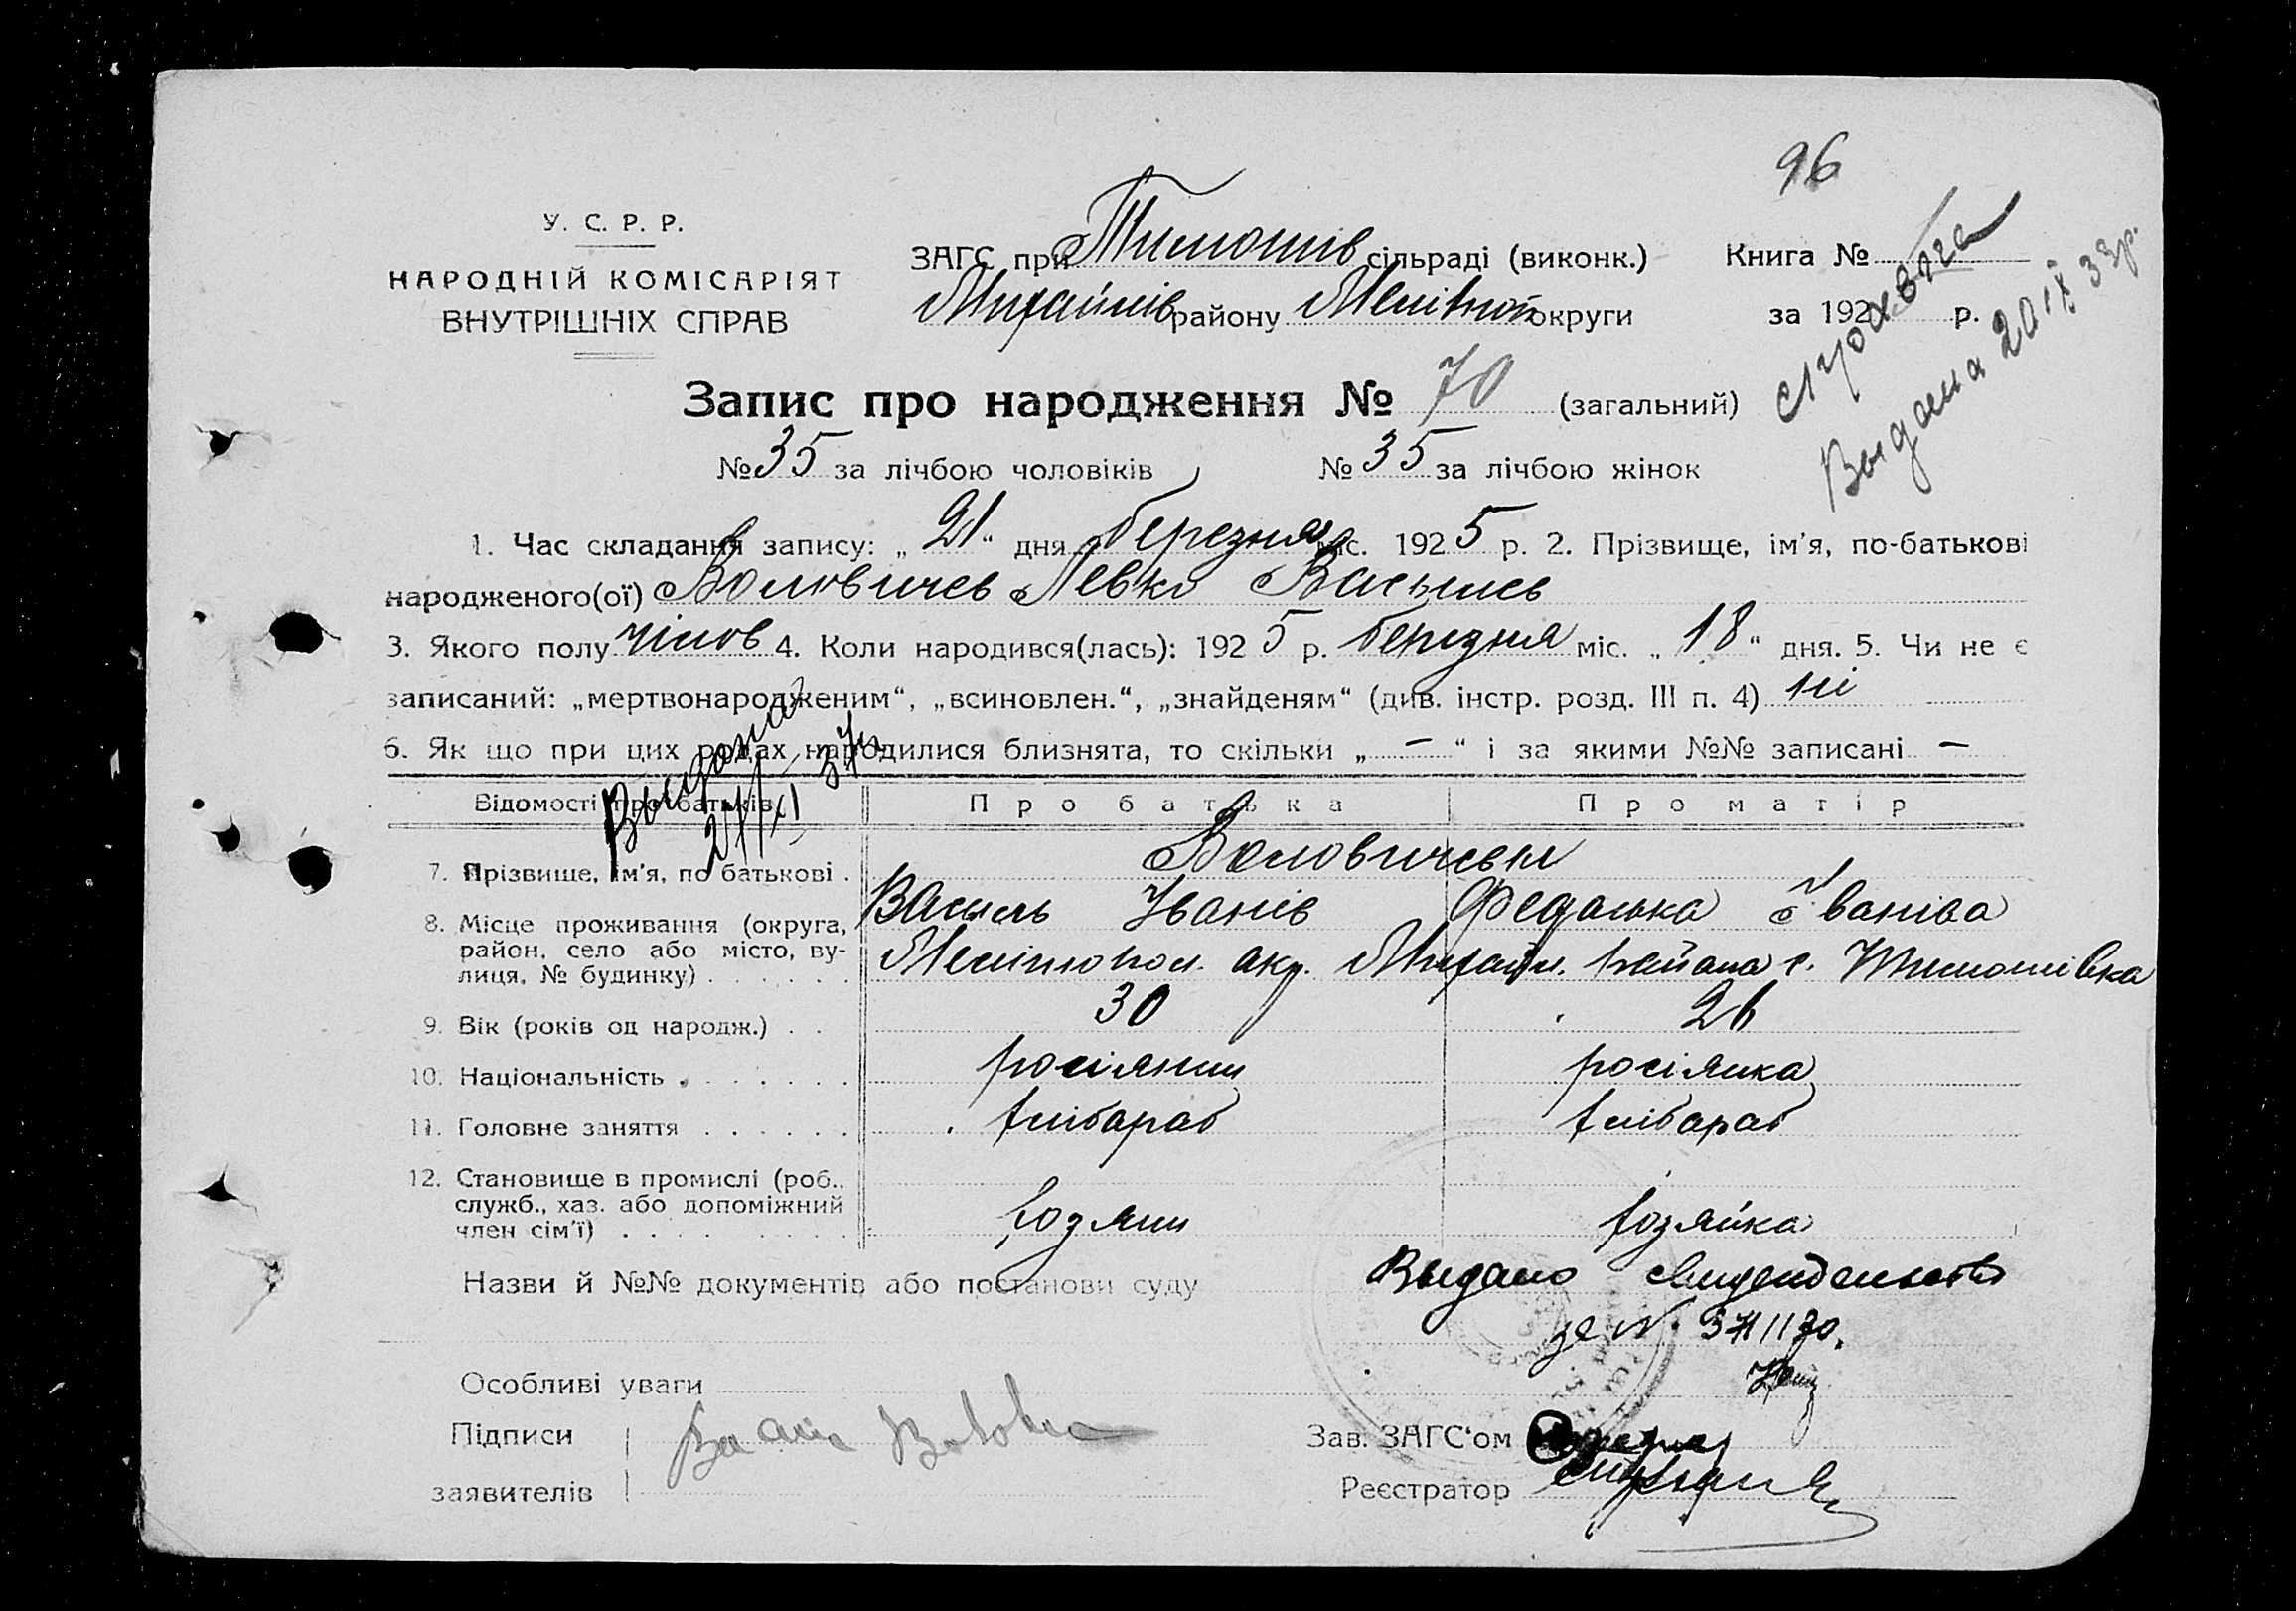 96
У. С. Р. Р.
НАРОДНІЙ КОМІСАРІЯТ
ВНУТРІШНІХ СПРАВ
ЗАГС при Тимошів сільраді (виконк.)
Михайлів району Меліт округи
Книга №
за 192 р.
справка
Выдана 20 IX 33 р.
Запис про народження № 70 (загальний)
№ 35 за лічбою чоловіків № 35 за лічбою жінок
1. Час складання запису: „21“ дня березня міс. 1925 р. 2. Прізвище, ім'я, по-батькові
народженого(ої) Воловичев Левко Васылев
3. Якого полу чілов 4. Коли народився(лась): 1925 р. березня міс. „18“ дня. 5. Чи не є
записаний: „мертвонародженим“, „всиновлен.“, „знайденям“ (див. інстр. розд. III п. 4) ні
6. Як що при цих родах народилися близнята, то скільки „ — “ і за якими №№ записані —
Выдана
Відомості про батьків Про батька Про матір
7. Прізвище, ім'я, по батькові .
Воловичевы
Василь Іванів Федоська Іванова
8. Місце проживання (округа,
район, село або місто, ву-
лиця, № будинку) . . . . . .
Мелітопол. окр. Михайл. района с. Тимошівка
9. Вік (років од народж.) . . 30 26
10. Національність . . . . . . . росіянин росіянка
11. Головне заняття . . . . . . хлібороб хлібороб
12. Становище в промислі (роб.,
служб., хаз. або допоміжний
член сім'ї) . . . . . . . . .
хозяин хозяйка
Назви й №№ документів або постанови суду
Выдано
за №
Особливі уваги
Підписи
заявителів
Зав. ЗАГС'ом
Реєстратор